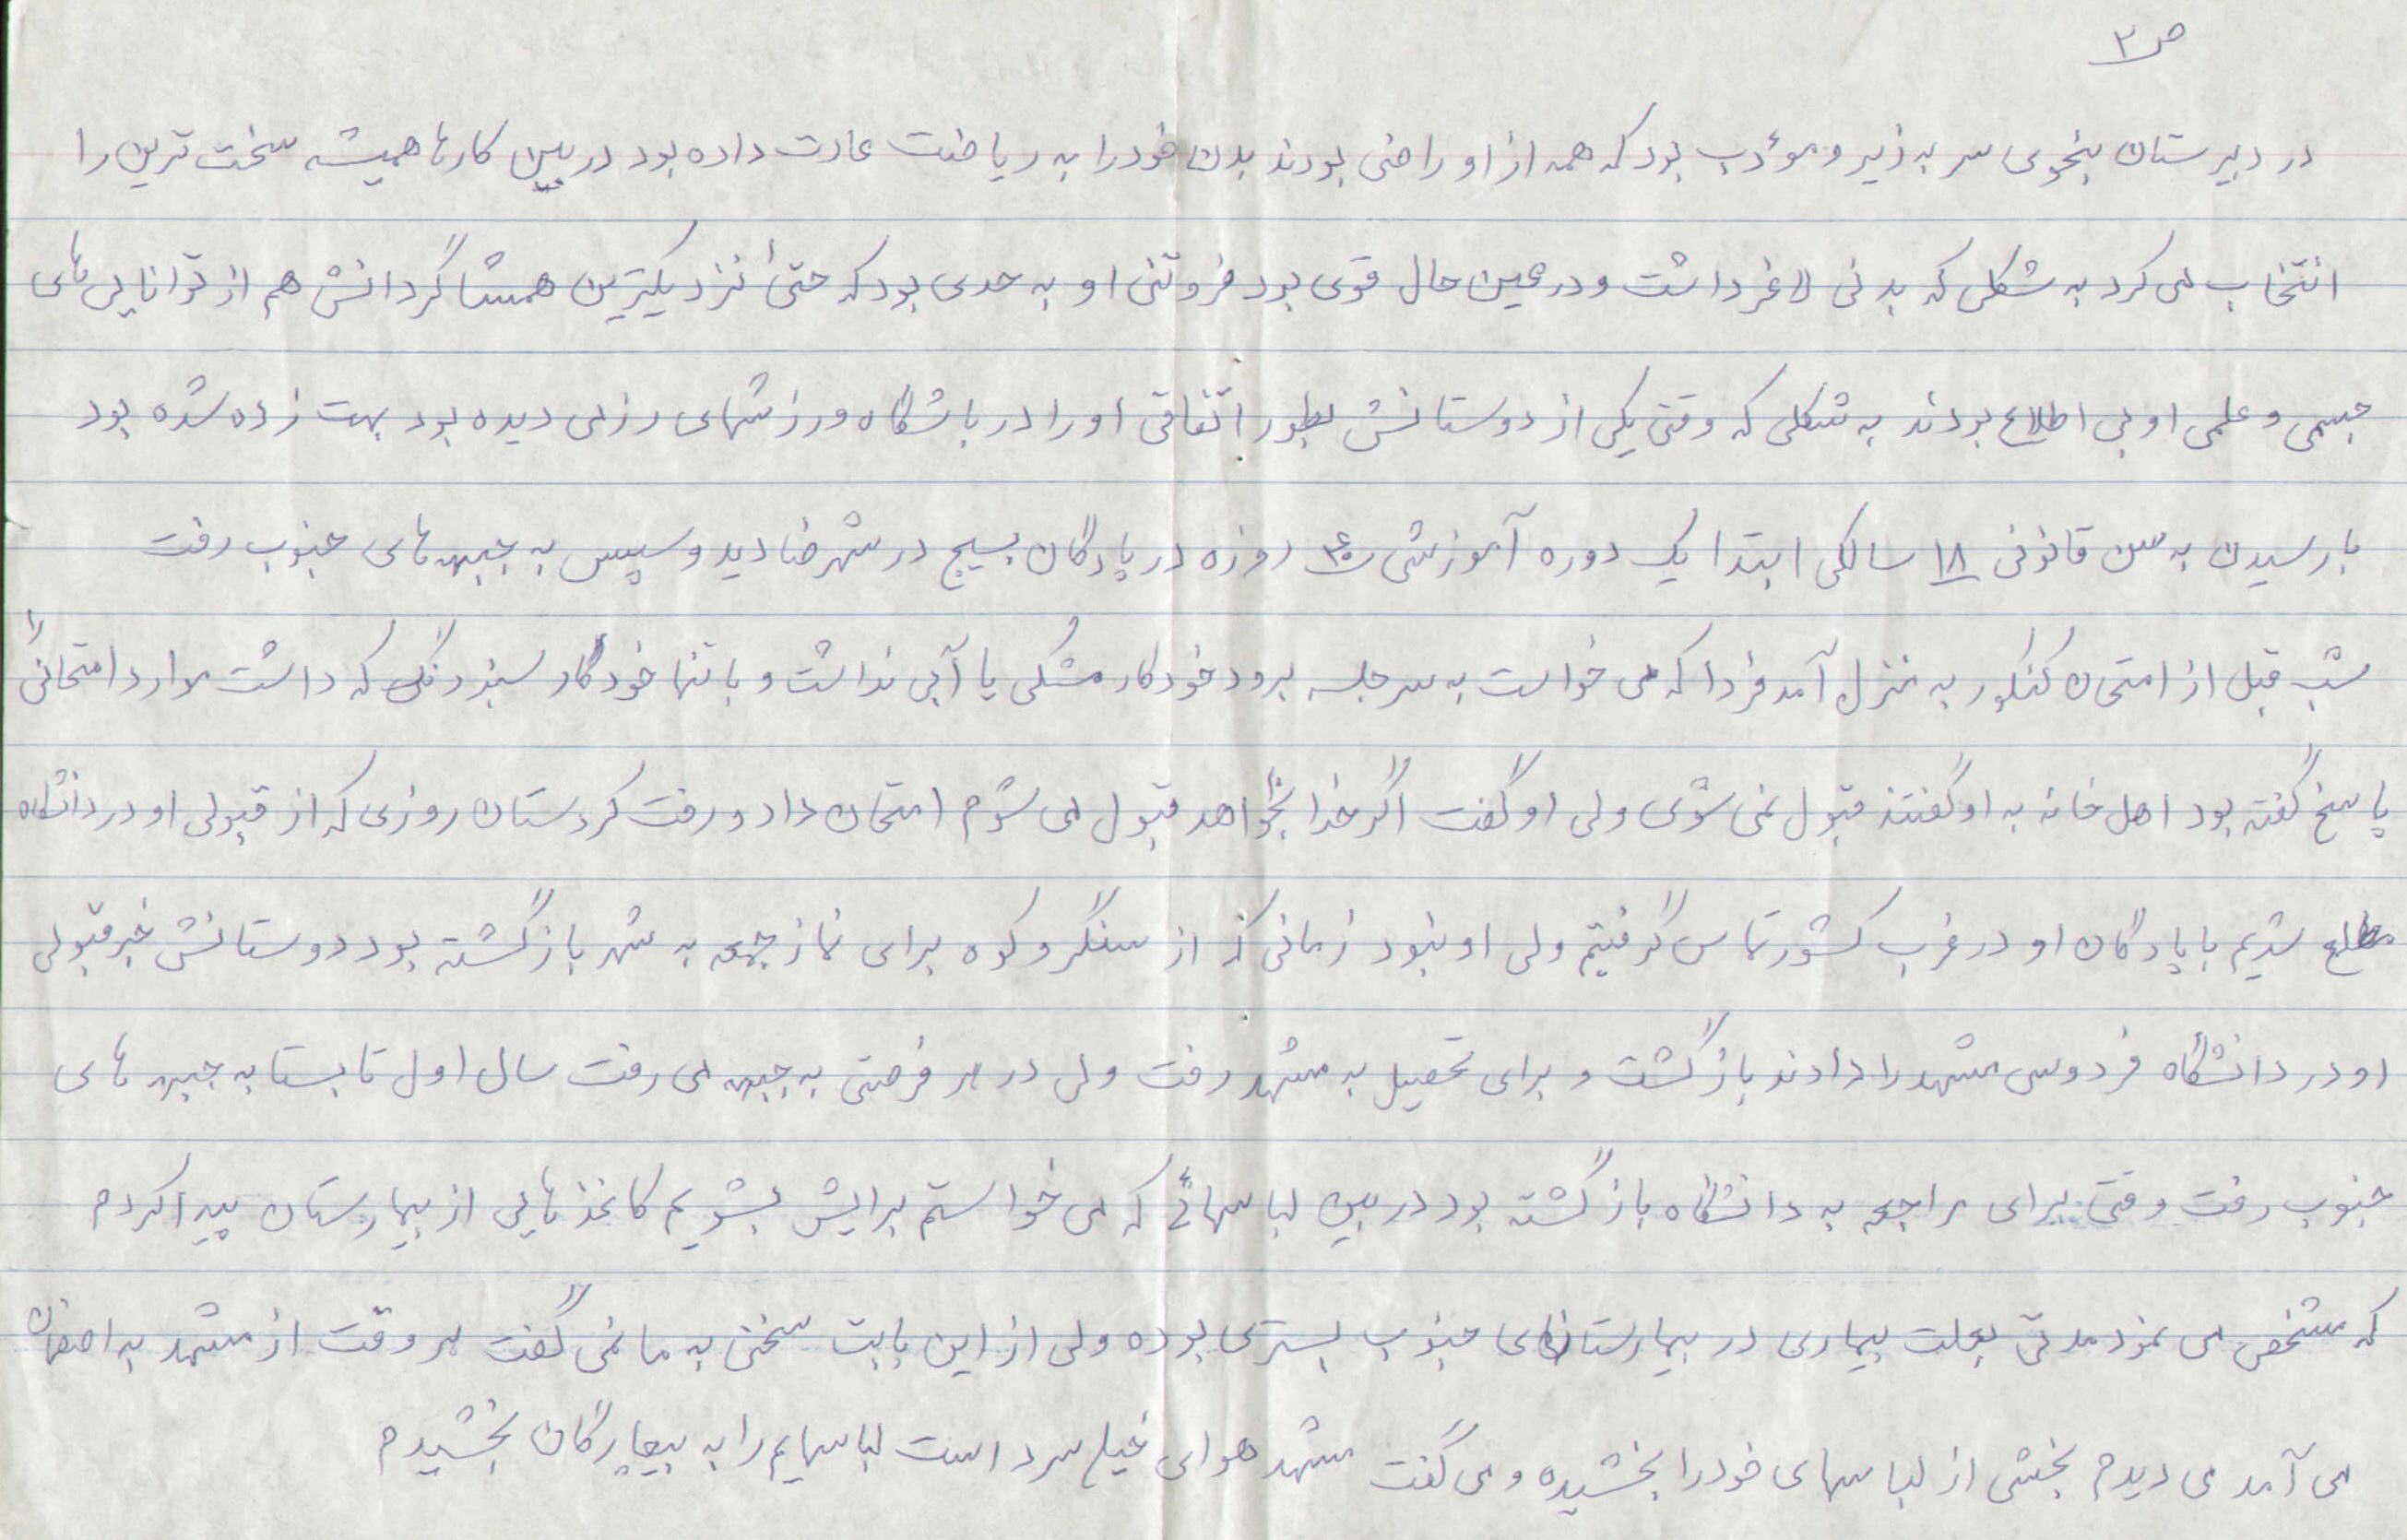 ص ۳
در دبیرستان بنحوی سر به زیر و مؤدب بود که همه از او راضی بودند بدن خود را به ریاضت عادت داده بود در بین کارها همیشه سخت ترین را
انتخاب می کرد به شکلی که بدنی لاغر داشت و در عین حال قوی بود فروتنی او به حدی بود که حتی نزدیکترین همشاگردانش هم از توانایی های
جسمی و علمی او بی اطلاع بودند به شکلی که وقتی یکی از دوستانش بطور اتفاقی او را در باشگاه ورزشهای رزمی دیده بود بهت زده شده بود
با رسیدن به سن قانونی ۱۸ سالگی ابتدا یک دوره آموزشی روزه در پادگان بسیج در شهرضا دید و سپس به جبهه های جنوب رفت
شب قبل از امتحان کنکور به منزل آمد فردا که می خواست به سر جلسه برود خودکار مشکی یا آبی نداشت و با تنها خودکار سبز رنگی که داشت موارد امتحانی را
پاسخ گفته بود اهل خانه به او گفتند قبول نمی شوی ولی او گفت اگر خدا بخواهد قبول می شوم امتحان داد و رفت کردستان روزی که از قبولی او در دانشگاه
مطلع شدیم با پادگان او در غرب کشور تماس گرفتیم ولی او نبود زمانی که از سنگر و کوه برای نماز جمعه به شهر بازگشته بود دوستانش خبر قبولی
او در دانشگاه فردوسی مشهد را دادند بازگشت و برای تحصیل به مشهد رفت ولی در هر فرصتی به جبهه می رفت سال اول تابستا به جبهه های
جنوب رفت وقتی برای مراجعه به دانشگاه بازگشته بود در بین لباسهائی که می خواستم برایش بشویم کاغذهایی از بیمارستان پیدا کردم
که مشخص می نمود مدتی بعلت بیماری در بیمارستانهای جنوب بستری بوده ولی از این بابت سخنی به ما نمی گفت هر وقت از مشهد به اصفهان
می آمد می دیدم بخشی از لباسهای خود را بخشیده و می گفت مشهد هوای خیلی سرد است لباسهایم را به بیچارگان بخشیدم